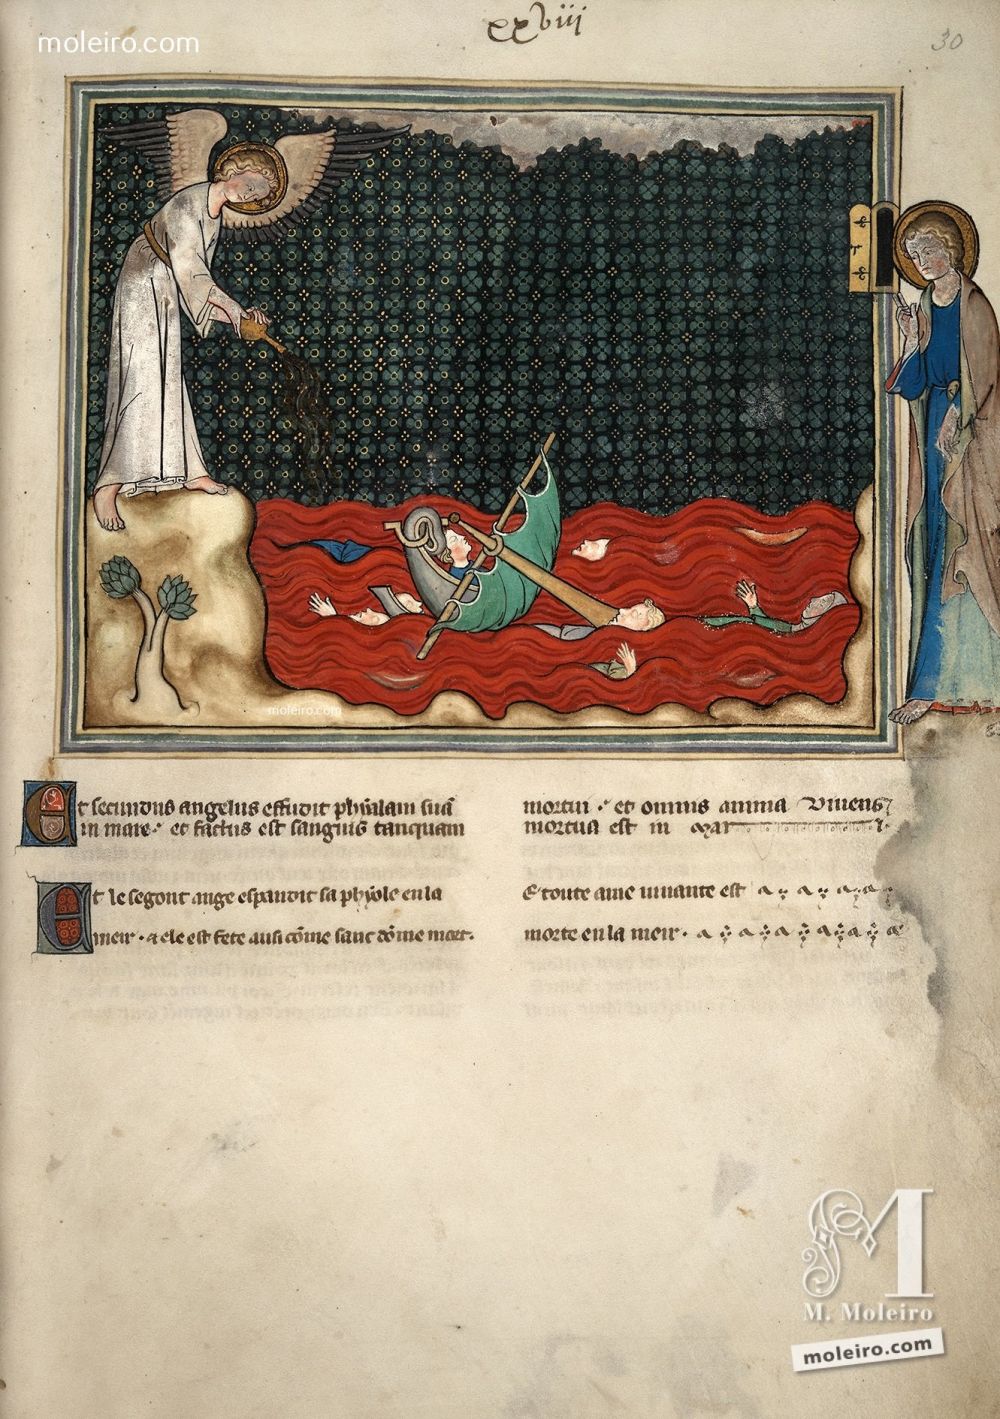 moleiro.com
xxviii
30
moleiro.com
Et secundus angelus effudit phyalam suā
in mare et factus est sanguis tanquam
mortui et omnis anima viuens
mortua est in mar i.
Et le segont ange espandit sa phyole en la
meir · & ele est fete ausi cōme sanc dōme mort.
E toute ame uiuante est
morte en la meir.
M
M. Moleiro
moleiro.com